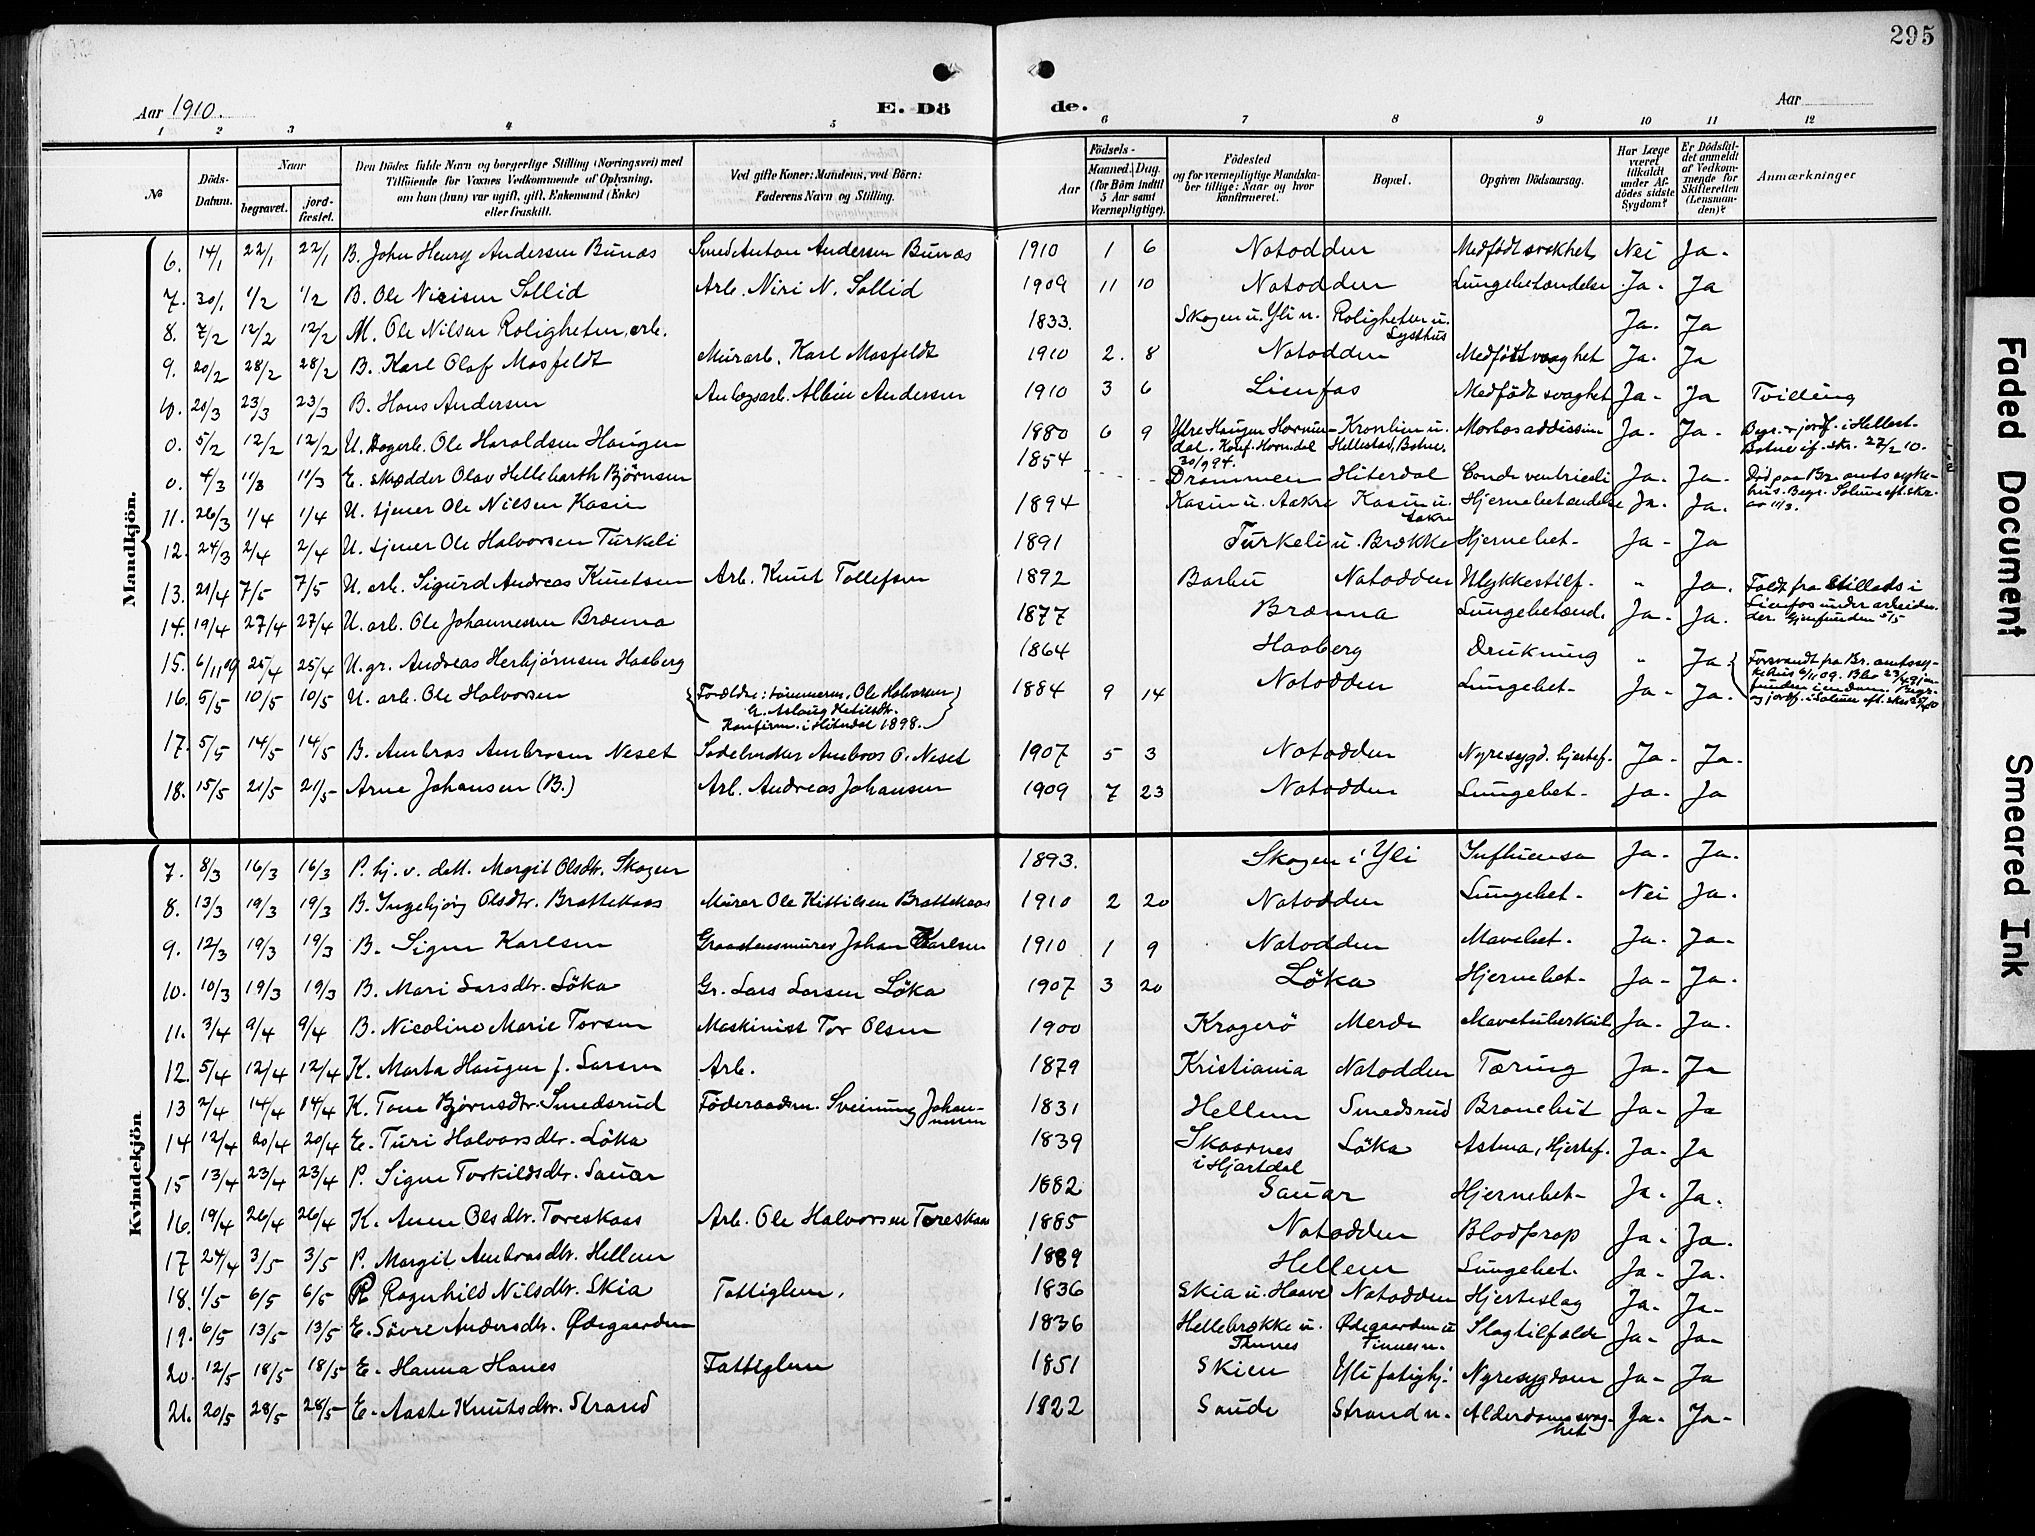 295
Aar 1910.
E. Dö de.
Aar
1 2 3 4 5 6 7 8 9 10 11 12
№
Döds-Datum.
Naar
begravet.
jord-fæstet.
Den Dödes fulde Navn og borgerlige Stilling (Næringsvei) med
Tilföiende for Voxnes Vedkommende af Oplysning,
om han (hun) var ugift, gift, Enkemand (Enke)
eller fraskilt.
Ved gifte Koner: Mandens, ved Börn:
Faderens Navn og Stilling.
Födsels-
Aar
Maaned. Dag.
(for Börn indtil
5 Aar samt
Værnepligtige).
Födested
og for værnepligtige Mandska-
ber tillige: Naar og hvor
konfirmeret.
Bopæl.
Opgiven Dödsaarsag.
Har Læge
været
tilkaldt
under Af-
dödes sidste
Sygdom?
Er Dödsfal-
det anmeldt
af Vedkom-
mende for
Skifteretten
(Lensman-
den)?
Anmærkninger
Mandkjön.
6. 14/1 22/1 22/1 B. John Henry Andersen Bunæs Smed Anton Andersen Bunæs 1910 1 6 Notodden Medfödt svakhet Nei Ja.
7. 30/1 1/2 1/2 B. Ole Nirisen Sollid Arb. Niri N. Sollid 1909 11 10 Notodden Lungebetændelse Ja. Ja
8. 7/2 12/2 12/2 M. Ole Nilsen Roligheten, arb. 1833. Skogen u. Yli n. Roligheten u. Lysthus Ja. Ja
9. 20/2 28/2 28/2 B. Karl Olaf Mosfeldt Murarb. Karl Mosfeldt 1910 2. 8 Notodden Medfödt svaghet Ja. Ja
10. 20/3 23/3 23/3 B. Hans Andersen Anlægsarb. Albin Andersen 1910 3 6 Lienfos Medfödt svaghet Ja. Ja Tvilling
0. 5/2 12/2 12/2 U. Dagarb. Ole Haraldsen Haugen 1880 6 9 Ytre Haugen Hornin-dal. Konf. Horndal 30/9 94. Kronlien u. Hellestad, Botne. Morbus addissini Ja. Ja. Begr. & jordf. i Hellest. Botne if. skr. 27/2 10.
0. 4/3 11/3 11/3 E. skrædder Olav Hellebarth Bjørnsen 1854 Drammen Hiterdal Ja. Ja. Död paa Br. amts syke-hus. Begr. Solum eft. skr. av 11/3.
11. 26/3 1/4 1/4 U. tjener Ole Nilsen Kasin 1894 Kasin u. Aakre Kasin u. Aakre Hjernebetændelse Ja. Ja.
12. 24/3 2/4 2/4 U. tjener Ole Halvorsen Turkeli 1891 Turkeli u. Brække Hjernebet. Ja. Ja
13. 21/4 7/5 7/5 U. arb. Sigurd Andreas Knutsen Arb. Knut Tollefsen 1892 Barbu Notodden Ulykkestilf. " Ja. Faldt fra Stillads i Lienfos under arbeidet der. Gjenfunden 5/5
14. 19/4 27/4 27/4 U. arb. Ole Johannessen Brænna 1877 Brænna Lungebetænd. Ja. Ja.
15. 6/11 09 25/4 25/4 U. gr. Andreas Herbjørnsen Haaberg 1864 Haaberg Drukning " Ja Forsvandt fra Br. amtssy-kehus 6/11 09. Blev
16. 5/5 10/5 10/5 U. arb. Ole Halvorsen Forældre: tømmerm. Ole Halvorsen h. Aslaug Ketilsdtr. Konfirm. i Hiterdal 1898. 1884 9 14 Notodden Lungebet. Ja. Ja.
17. 5/5 14/5 14/5 B. Ambros Ambrosen Neset Sadelmaker Ambros O. Neset 1907 5 3 Notodden Nyresygd. hjertef. Ja. Ja.
18. 15/5 21/5 21/5 Arne Johansen (B.) Arb. Andreas Johansen 1909 7 23 Notodden Lungebet. Ja. Ja
Kvindekjön
7. 8/3 16/3 16/3 P. hj. v. datt. Margit Olsdtr. Skogen 1893. Skogen i Yli Influensa Ja. Ja.
8. 13/3 19/3 19/3 B. Ingebjørg Olsdtr. Brattekaas Murer Ole Kittilsen Brattekaas 1910 2 20 Notodden Lungebet. Nei Ja.
9. 12/3 19/3 19/3 B. Signe Karlsen Graastensmurer Johan Karlsen 1910 1 9 Notodden Mavebet. Ja. Ja.
10. 10/3 19/3 19/3 B. Mari Larsdtr. Löka Gr. Lars Larsen Löka 1907 3 20 Löka Hjernebet. Ja. Ja.
11. 3/4 9/4 9/4 B. Nicoline Marie Torsen Maskinist Tor Olsen 1900 Kragerö Merde Mavetuberkul. Ja. Ja.
12. 5/4 12/4 12/4 K. Marta Haugen f. Larsen Arb. 1879 Kristiania Notodden Tæring Ja. Ja
13 2/4 14/4 14/4 K. Tone Bjørnsdtr. Smedsrud Föderaadsm. Sveinung Johan-nessen 1831 Hellem Smedsrud Ja. Ja
14 12/4 20/4 20/4 E. Turi Halvorsdtr. Löka 1839 Skaarnes i Hjartdal Löka Astma, Hjertef. Ja. Ja
15 13/4 23/4 23/4 P. Signe Torkildsdtr. Sauar 1882 Sauar Hjernebet. Ja. Ja.
16. 19/4 26/4 26/4 K. Anne Olsdtr. Toreskaas Arb. Ole Halvorsen Toreskaas 1885 Notodden Blodprop Ja. Ja.
17 24/4 3/5 3/5 P. Margit Ambrosdtr. Hellem 1889 Hellem Lungebet. Ja. Ja.
18. 1/5 6/5 6/5 P. Ragnhild Nilsdtr. Skia Fattiglem. 1836 Skia u. Haave Notodden Hjerteslag Ja. Ja.
19. 6/5 13/5 13/5 E. Sövre Andersdtr. Ødegaarden 1836 Hellebrække u. Tinnes Ødegaarden u Tinnes n. Slagtilfælde Ja. Ja.
20. 12/5 18/5 18/5 E. Hanna Hanes Fattiglem 1851 Skien Yli fatighj. Nyresygdom Ja. Ja
21. 20/5 28/5 28/5 E. Aaste Knutsdtr. Strand 1822 Saude Strand n. Alderdomssvag-het Ja. Ja.
Faded Document
Smeared Ink